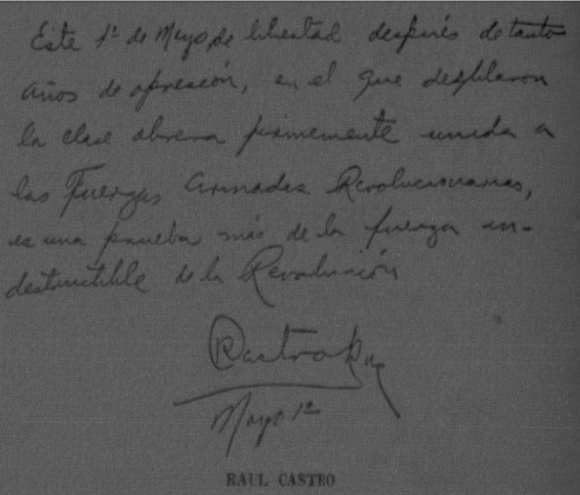 Este 1º de Mayo, de libertad después de tanto
años de opresión, en el que desfilaron
la clase obrera firmemente unida a
las Fuerzas Armadas Revolucionarias,
es una prueba más de la fuerza in-
destructible de la Revolución
RCastroRuz
Mayo 1º
RAUL CASTRO